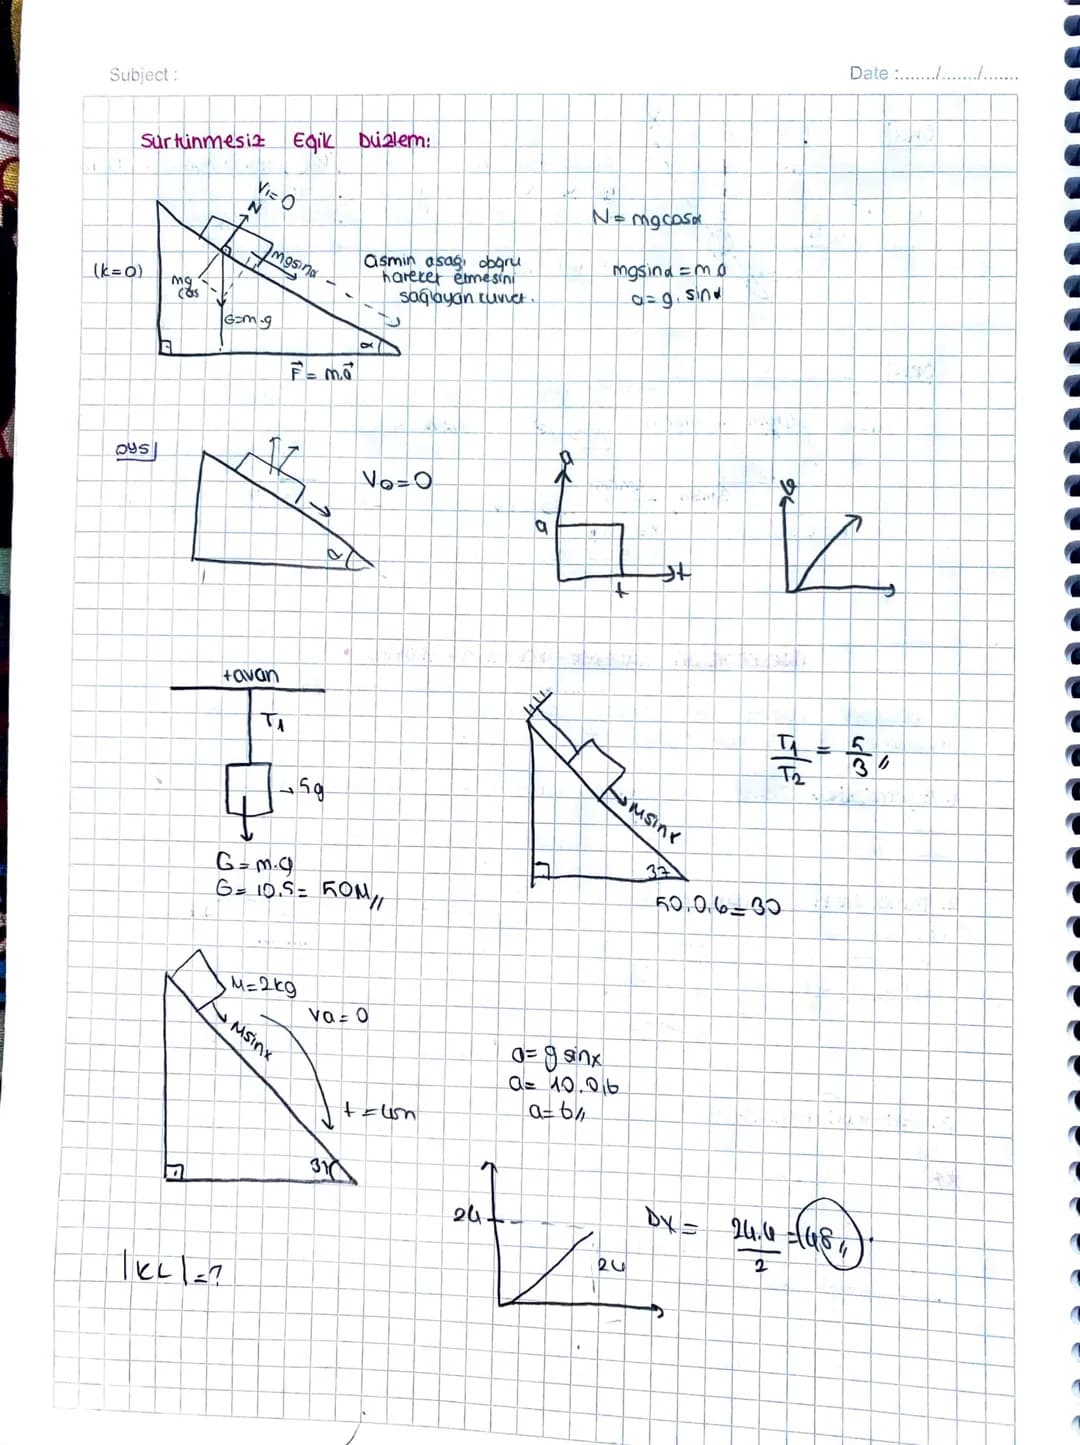 Subject :
Date :......./......./.......
Sürtünmesiz Eğik Düzlem:
V₁=0
N
mgsinα
(k=0)
mg
cos
G=m.g
α
F = m.a
asmin aşağı doğru
hareket etmesini
sağlayan kuvvet.
N= mgcosα
mgsinα = m a
a=g. sinα
V₀=0
α
a
a
t
t
tavan
T₁
G=m.g
G= 10.5= 50
T₁/T₂ = 5/3 //
Msinx
37
50.0,6=30
M=2kg
Msinx
V₀=0
37
a= g sinx
a= 10.0,6
a=6//
24
24
DX= 24.4/2 =48//
|KL|=?